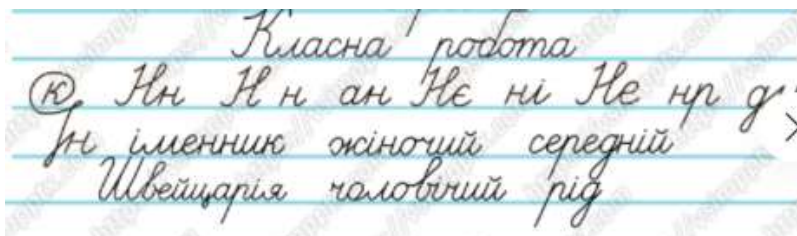 Класна робота
К Нн Н н ан Нє ні Не нр д
Ін іменник жіночий середній
Швейцарія чоловічий рід